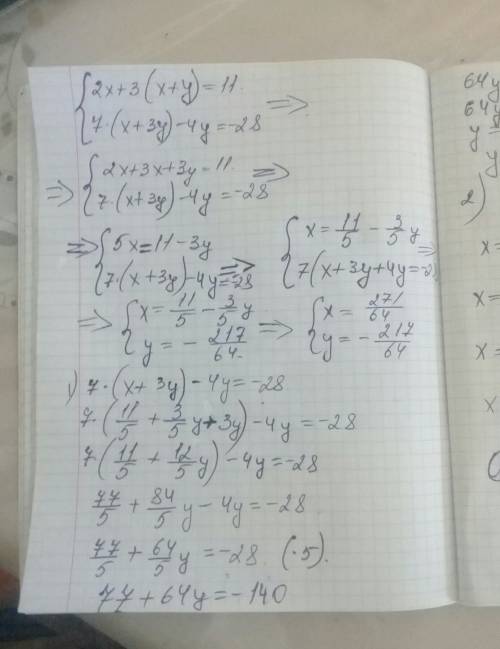 {2x+3(x+y)=11.
{7·(x+3y)-4y=-28 =>
=> {2x+3x+3y=11. =>
{7·(x+3y)-4y=-28
=> {5x=11-3y
{7·(x+3y)-4y=-28 =>
{x=11/5 - 3/5 y =>
{7(x+3y+4y=-28
=> {x=11/5 - 3/5 y
{y=-217/64 =>
{x=271/64
{y=-217/64
1) 7·(x+3y)-4y=-28
7·(11/5 + 3/5 y + 3y)-4y=-28
7(11/5 + 12/5 y)-4y=-28
77/5 + 84/5 y - 4y=-28
77/5 + 64/5 y = -28 (·5).
77+64y=-140
64y
64y
y
y
2)
x=
x=
x=
x